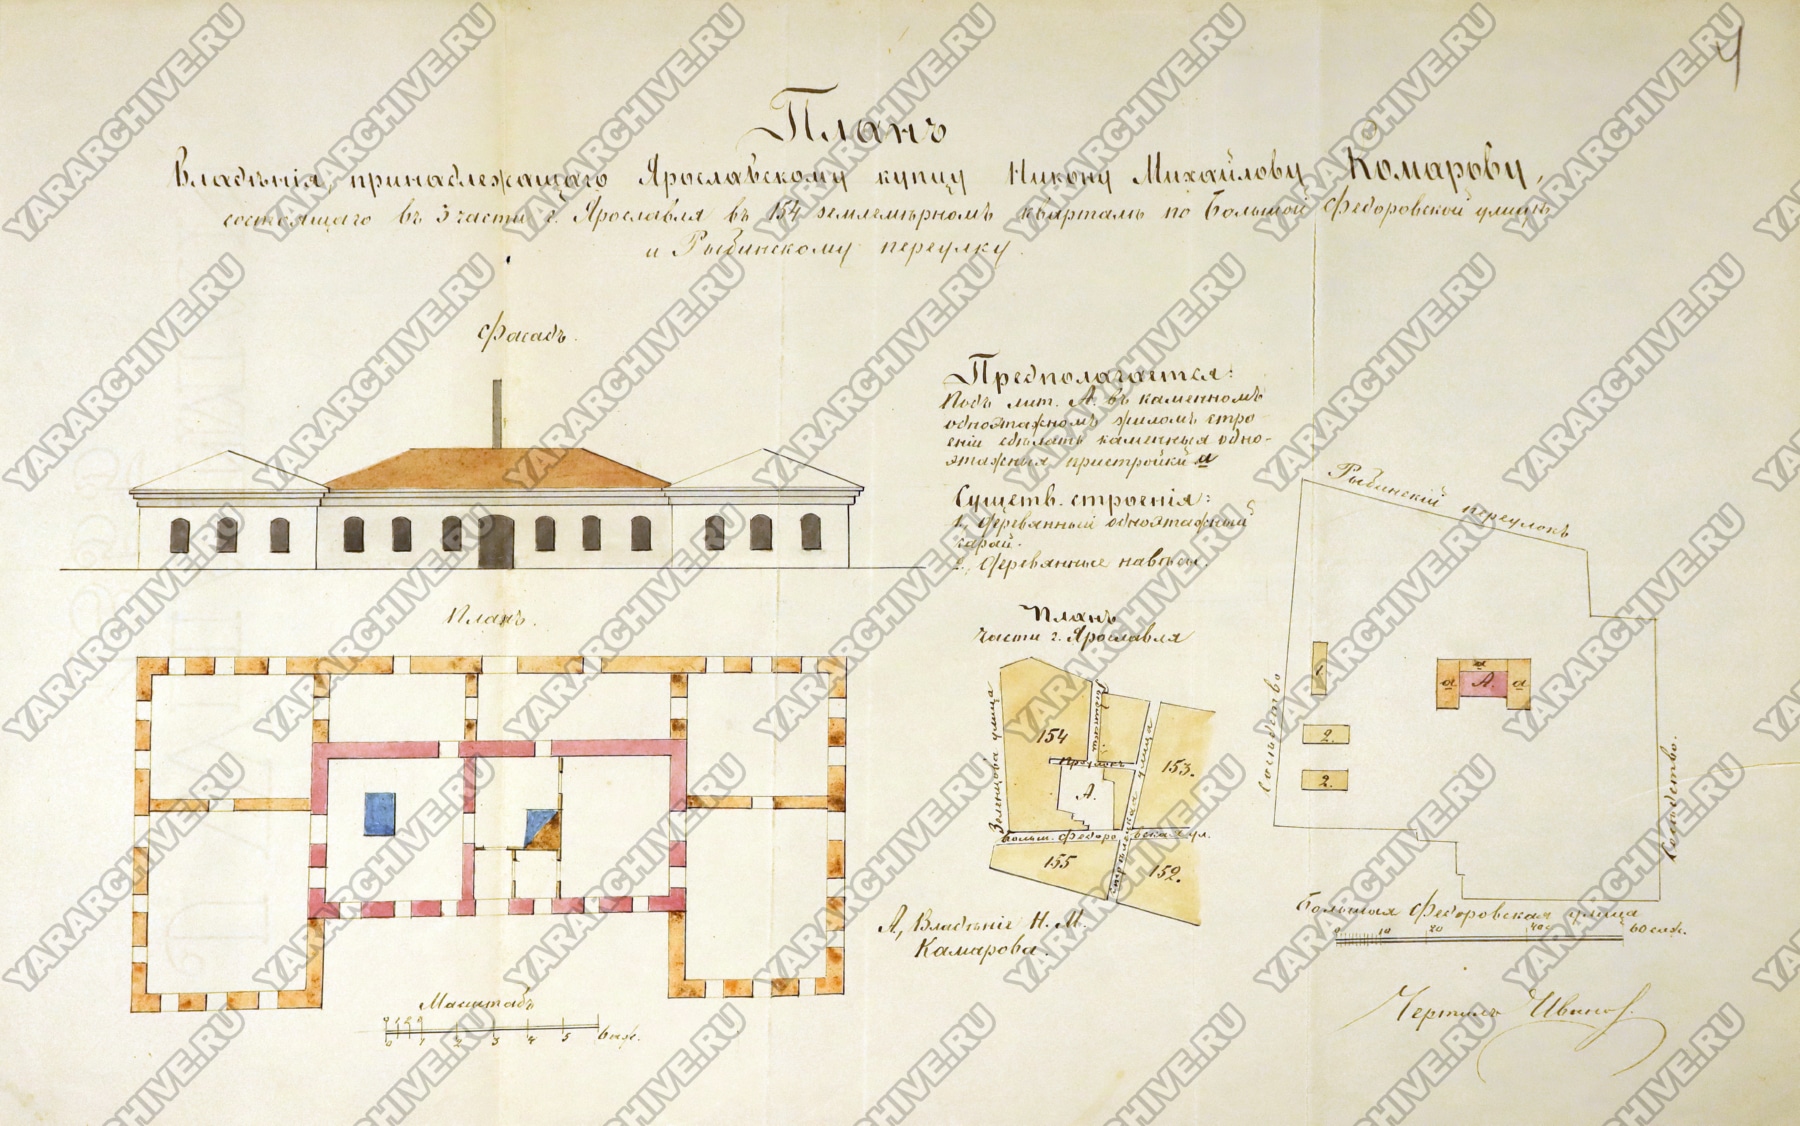 4
Планъ
Владѣнія, принадлежащаго Ярославскому купцу Никону Михайлову Комарову,
состоящаго въ 3 части г. Ярославля въ 154 землемѣрномъ кварталѣ по Большой Федоровской улицѣ
и Рыбинскому переулку.
Фасадъ.
Предполагается:
Подъ лит. А. въ каменномъ
одноэтажномъ жиломъ стро
еніи сдѣлать каменныя одно-
этажныя пристройки а
Существ. строенія:
1, Деревянный одноэтажный
сарай.
2, Деревянные навѣсы.
Планъ.
Масштабъ
0 1 2 3 4 5 6 саж.
Планъ
части г. Ярославля
Зеленцова улица
Рыбинскій
переулокъ
Стрѣлецкая улица
Больш. Федоровская ул.
154
153.
А.
155
152.
А, Владѣніе Н. М.
Камарова.
Рыбинскій переулокъ
Сосѣдство
Сосѣдство.
1
2.
2.
а
а А. а
Большая Федоровская улица
0 10 20 40 60 саж.
Чертилъ Иванов.
YARARCHIVE.RU